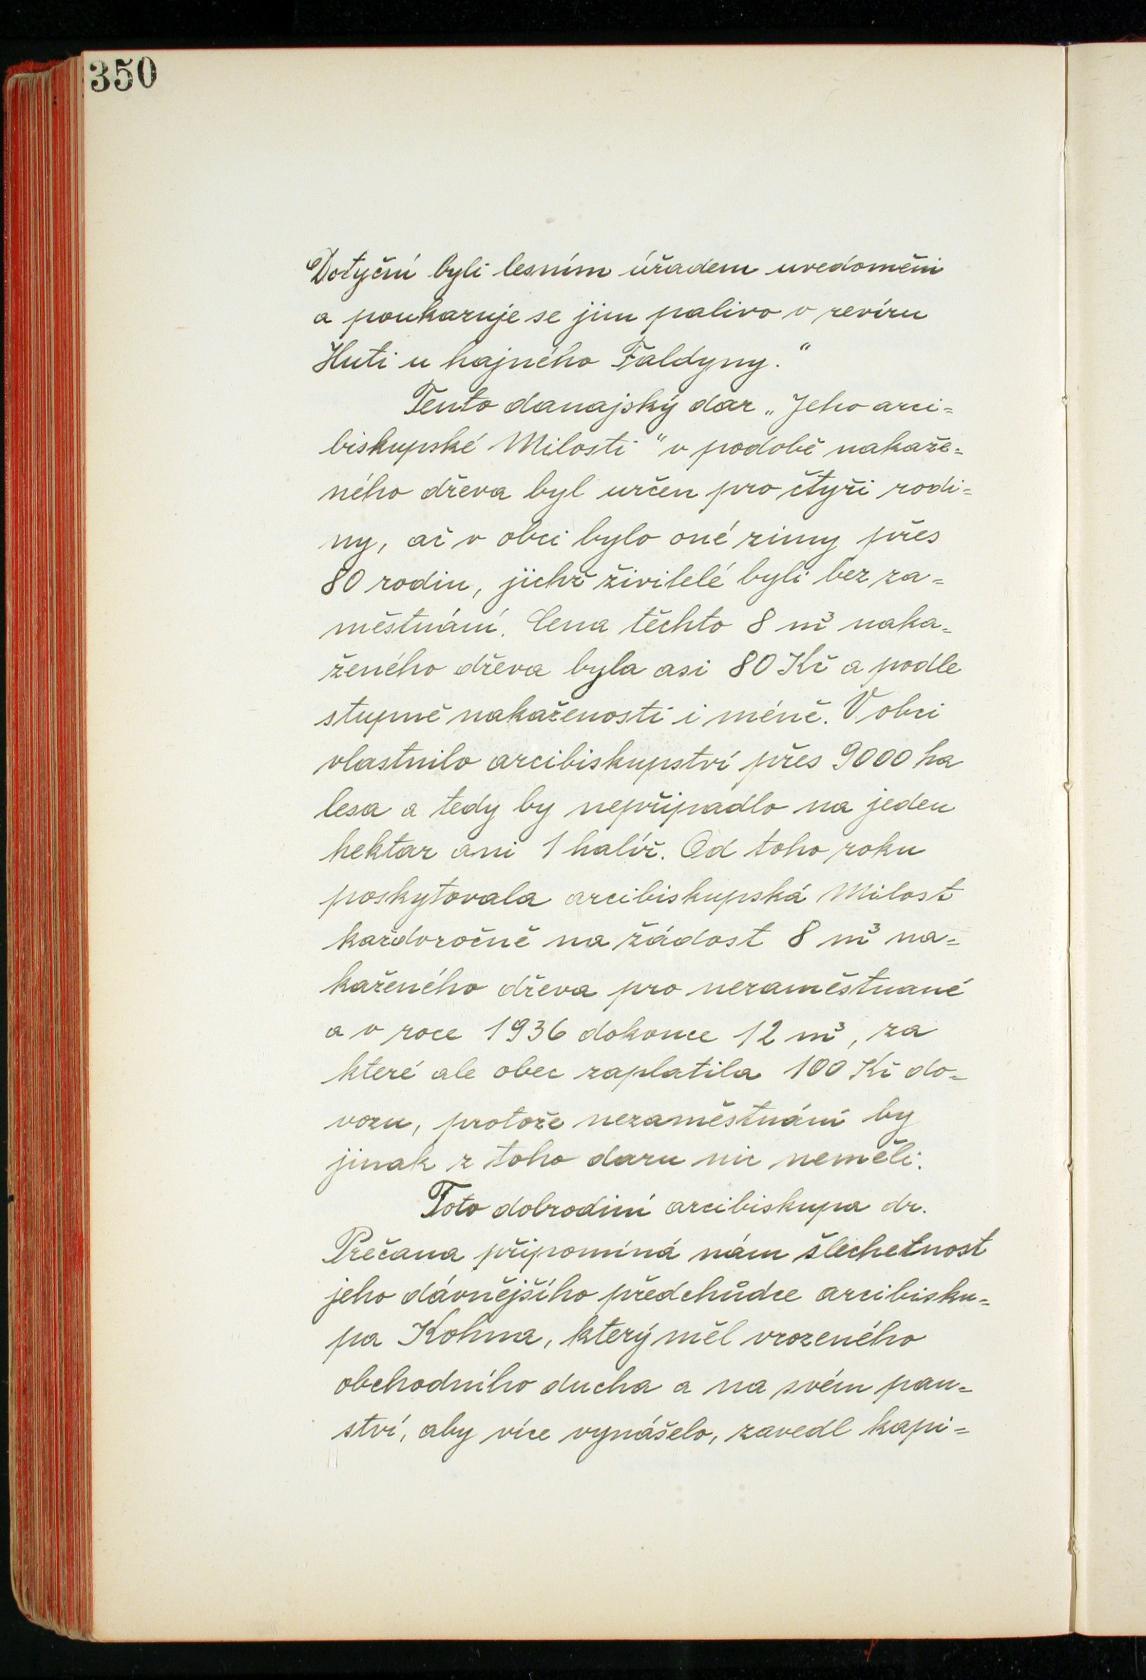 350
Dotyční byli lesním úřadem uvedoměni
a poukazuje se jim palivo v revíru
Huti u hajného Faldyny."
Tento danajský dar „Jeho arci=
biskupské Milosti" v podobě nakaže=
ného dřeva byl určen pro čtyři rodi=
ny, ač v obci bylo oné zimy přes
80 rodin, jichž živitelé byli bez za=
městnání. Cena těchto 8 m³ naka=
ženého dřeva byla asi 80 Kč a podle
stupně nakaženosti i méně. V obci
vlastnilo arcibiskupství přes 9000 ha
lesa a tedy by nepřipadlo na jeden
hektar ani 1 halíř. Od toho roku
poskytovala arcibiskupská Milost
každoročně na žádost 8 m³ na=
kaženého dřeva pro nezaměstnané
a v roce 1936 dokonce 12 m³, za
které ale obec zaplatila 100 Kč do=
vozu, protože nezaměstnání by
jinak z toho daru nic neměli.
Toto dobrodiní arcibiskupa dr.
Prečana připomíná nám šlechetnost
jeho dávnějšího předchůdce arcibisku=
pa Kohna, který měl vrozeného
obchodního ducha a na svém pan=
ství, aby více vynášelo, zavedl kapi=